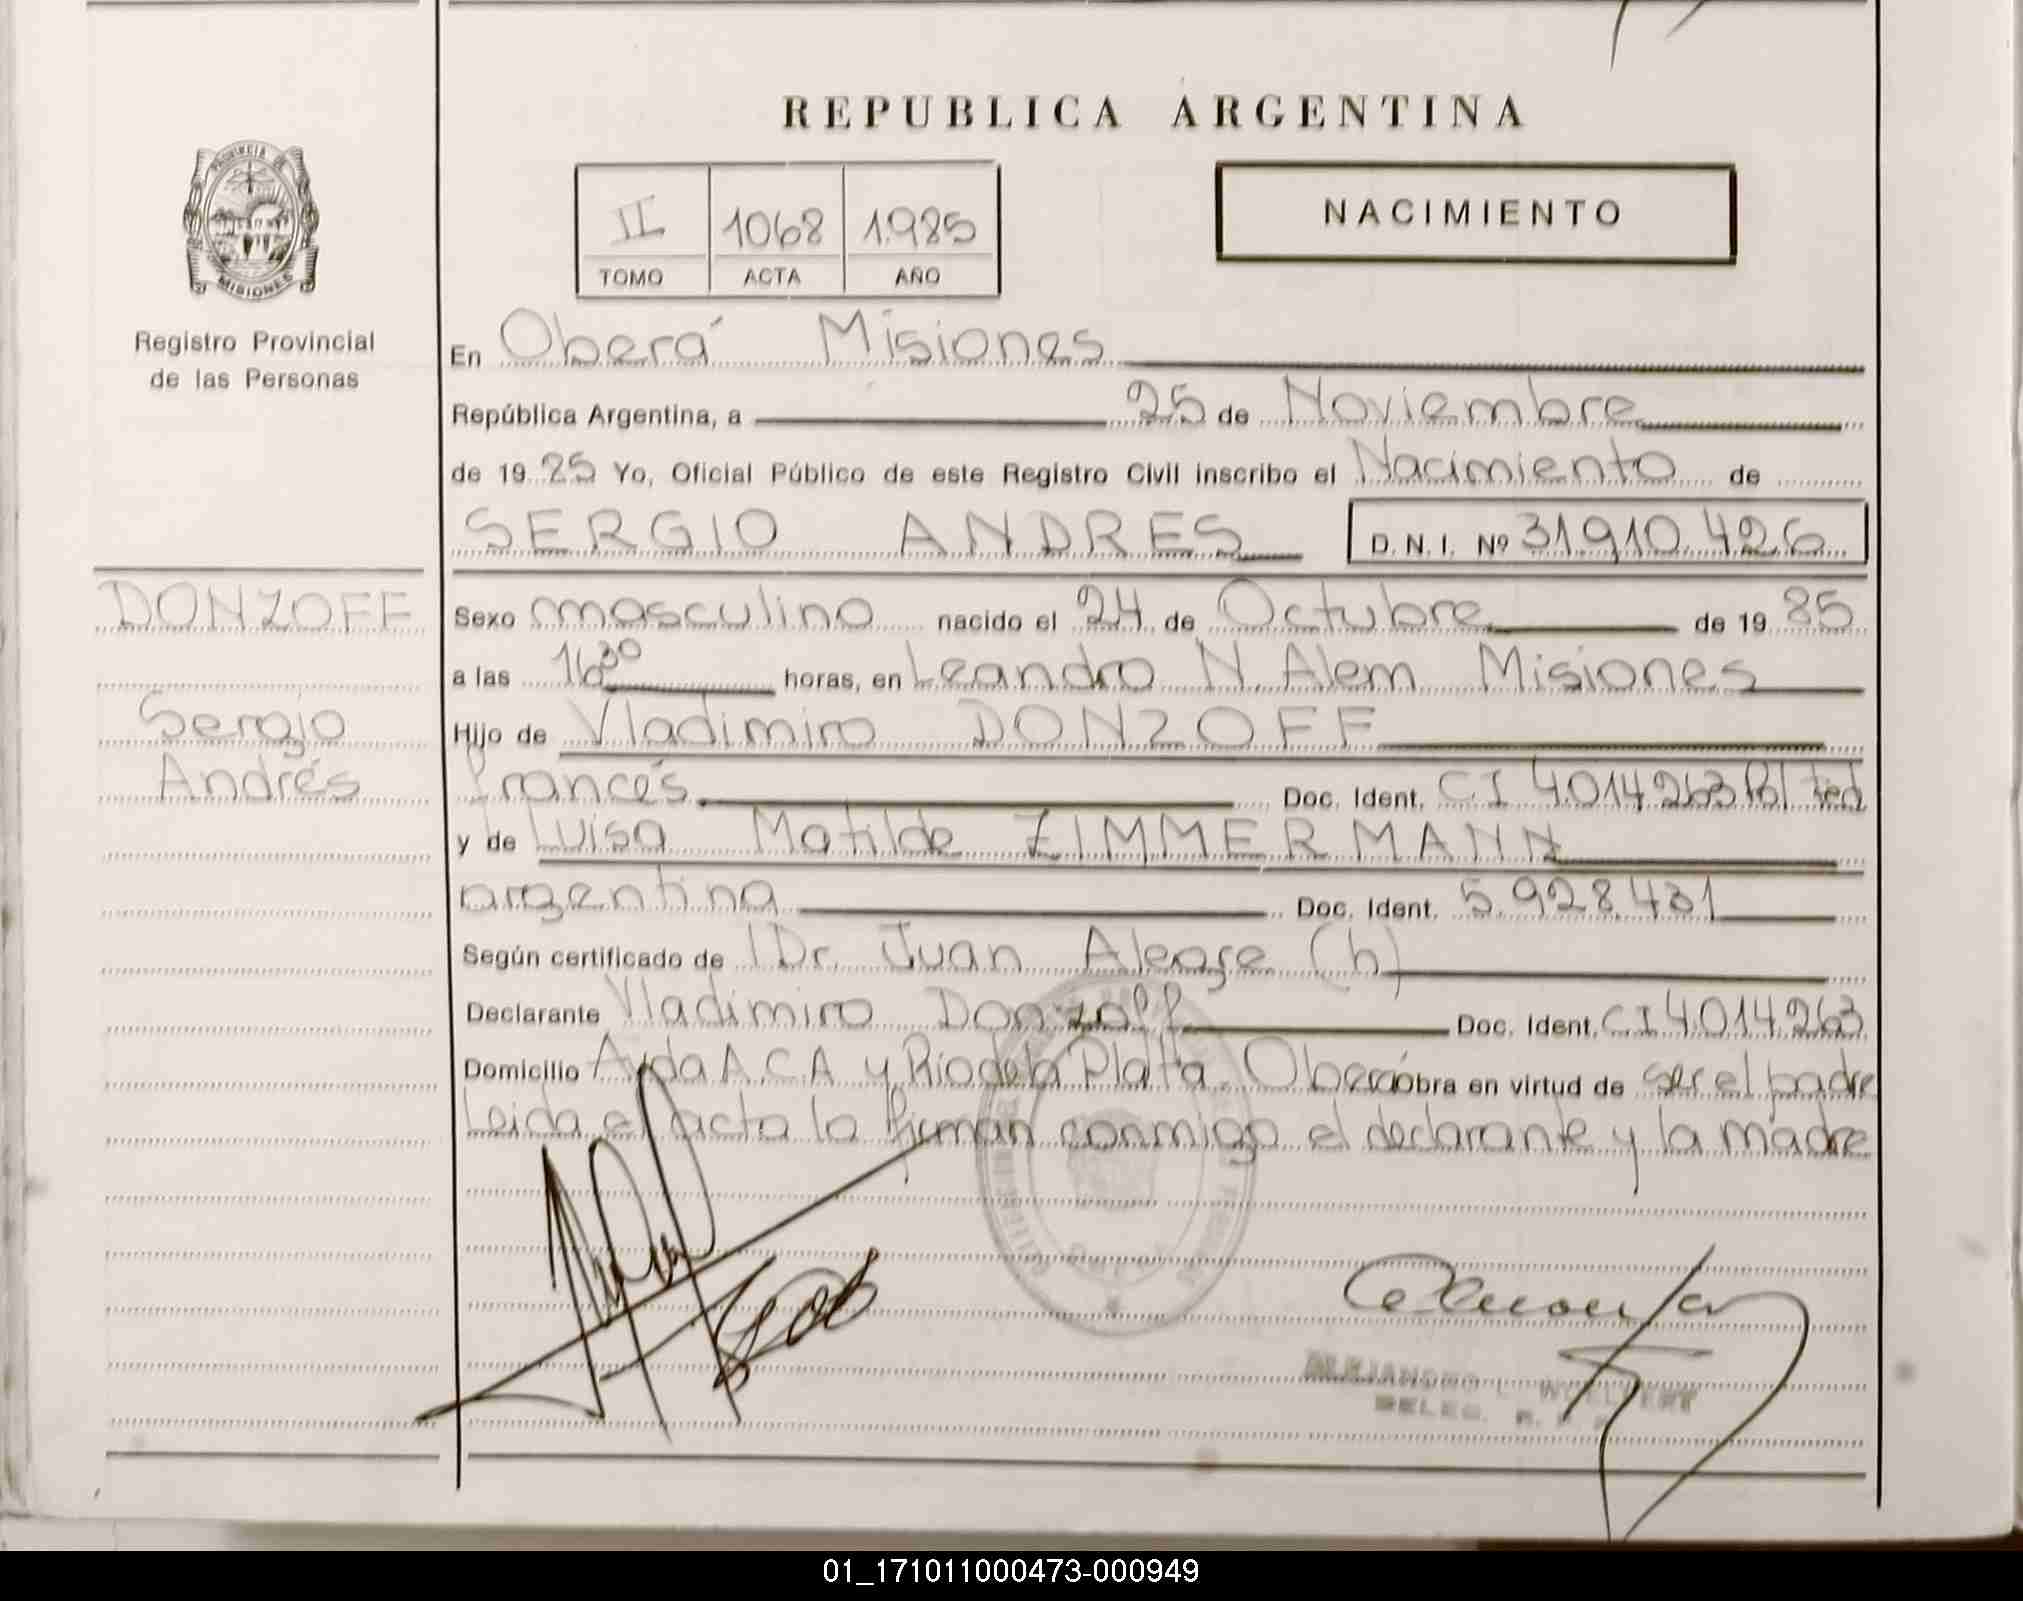 REPUBLICA ARGENTINA
PROVINCIA DE
MISIONES
Registro Provincial
de las Personas
II 1068 1.985
TOMO ACTA AÑO
NACIMIENTO
En Oberá Misiones
República Argentina, a 25 de Noviembre
de 19 85 Yo, Oficial Público de este Registro Civil inscribo el Nacimiento de
SERGIO ANDRES D.N.I. Nº 31.910.426
DONZOFF
Sergio
Andrés
Sexo masculino nacido el 24 de Octubre de 19 85
a las 16 30 horas, en Leandro N. Alem Misiones
Hijo de Vladimiro DONZOFF
francés Doc. Ident. CI 4.014.263 Pol Fed
y de Luisa Matilde ZIMMERMANN
argentina Doc. Ident. 5.928.431
Según certificado de Dr. Juan Alegre (h)
Declarante Vladimiro Donzoff Doc. Ident. CI 4.014.263
Domicilio Avda A.C.A y Rio de la Plata Oberá obra en virtud de ser el padre
Leida el acta la firman conmigo el declarante y la madre
ALEJANDRO L.
DELEG. R. P. P.
01_171011000473-000949